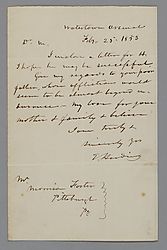 Watertown Arsenal
Feby. 25. 1853
Dr. M.
I enclose a letter for H.
I hope he may be successful
Give my regards to your poor
father, whose afflictions would
seem to be almost beyond en-
durance— My love for your
mother & family & believe
Yours truly &
Sincerely
E. Harding
Mr.
Morrison Foster
Pittsburgh
Pa